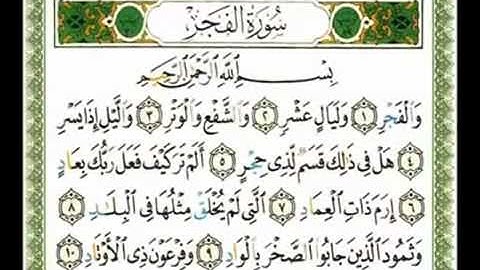 سُورَةُ الفَجْرِ
بِسْمِ ٱللَّهِ ٱلرَّحْمَٰنِ ٱلرَّحِيمِ
وَٱلْفَجْرِ ۝١ وَلَيَالٍ عَشْرٍ ۝٢ وَٱلشَّفْعِ وَٱلْوَتْرِ ۝٣ وَٱلَّيْلِ إِذَا يَسْرِ
۝٤ هَلْ فِي ذَٰلِكَ قَسَمٌ لِّذِي حِجْرٍ ۝٥ أَلَمْ تَرَ كَيْفَ فَعَلَ رَبُّكَ بِعَادٍ
۝٦ إِرَمَ ذَاتِ ٱلْعِمَادِ ۝٧ ٱلَّتِي لَمْ يُخْلَقْ مِثْلُهَا فِي ٱلْبِلَٰدِ ۝٨
وَثَمُودَ ٱلَّذِينَ جَابُوا۟ ٱلصَّخْرَ بِٱلْوَادِ ۝٩ وَفِرْعَوْنَ ذِي ٱلْأَوْتَادِ ۝١٠